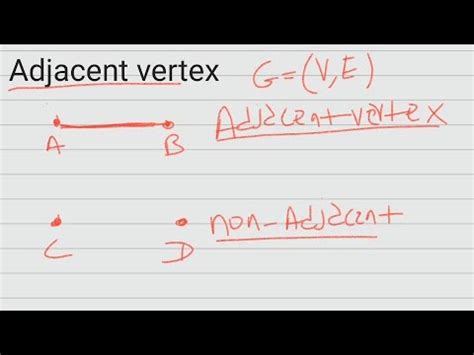 Adjacent vertex G=(V,E)
A B Adjacent vertex
C D non-Adjacent